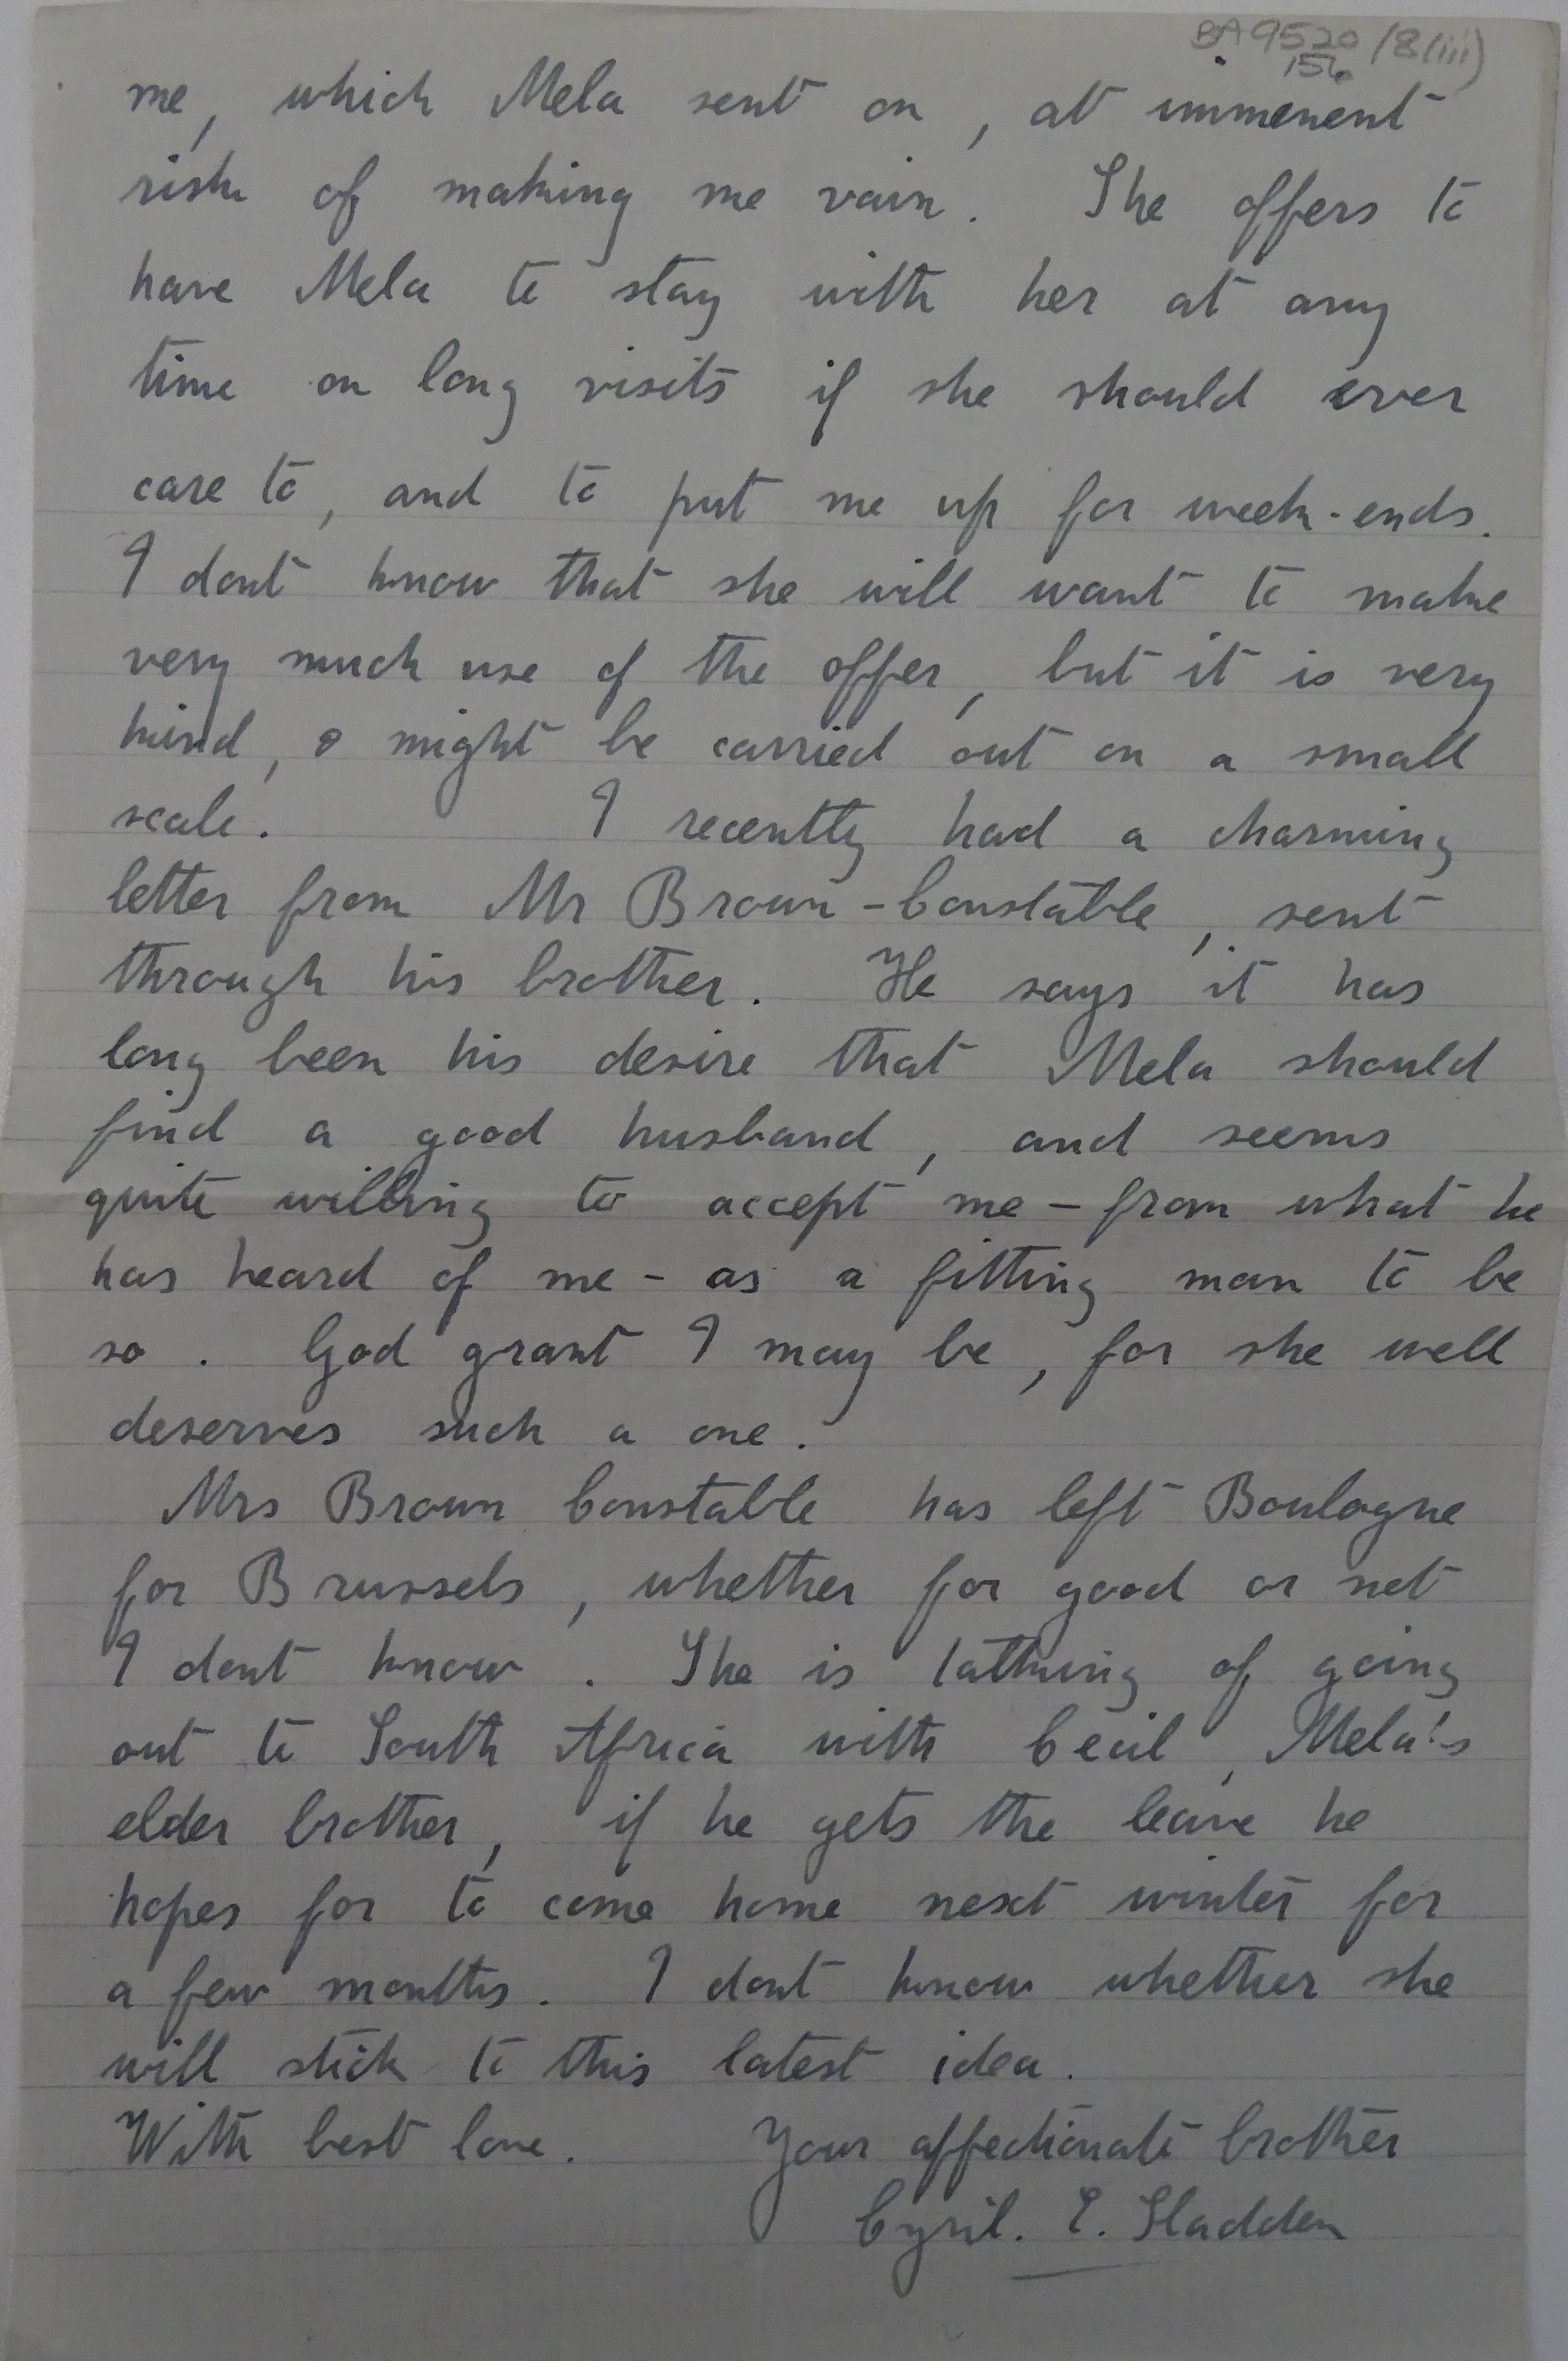 BA 9520 /8(iii)
156
me, which Mela sent on, at immenent
risk of making me vain. She offers to
have Mela to stay with her at any
time on long visits if she should ever
care to, and to put me up for week-ends.
I dont know that she will want to make
very much use of the offer, but it is very
kind, & might be carried out on a small
scale. I recently had a charming
letter from Mr Brown-Constable, sent
through his brother. He says it has
long been his desire that Mela should
find a good husband, and seems
quite willing to accept me – from what he
has heard of me – as a fitting man to be
so. God grant I may be, for she well
deserves such a one.
Mrs Brown Constable has left Boulogne
for Brussels, whether for good or not
I dont know. She is talking of going
out to South Africa with Cecil, Mela's
elder brother, if he gets the leave he
hopes for to come home next winter for
a few months. I dont know whether she
will stick to this latest idea.
With best love. Your affectionate brother
Cyril. E. Sladden